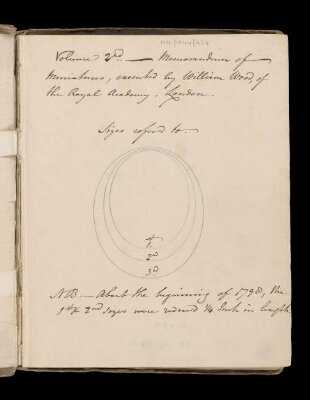 Volume 2nd. — Memorandum of
Miniatures, executed by William Wood, of
the Royal Academy, London.
Sizes refered to.
1st
2nd
3d
NB — About the beginning of 1798, the
1st & 2nd sizes were reduced 1/4 Inch in length.